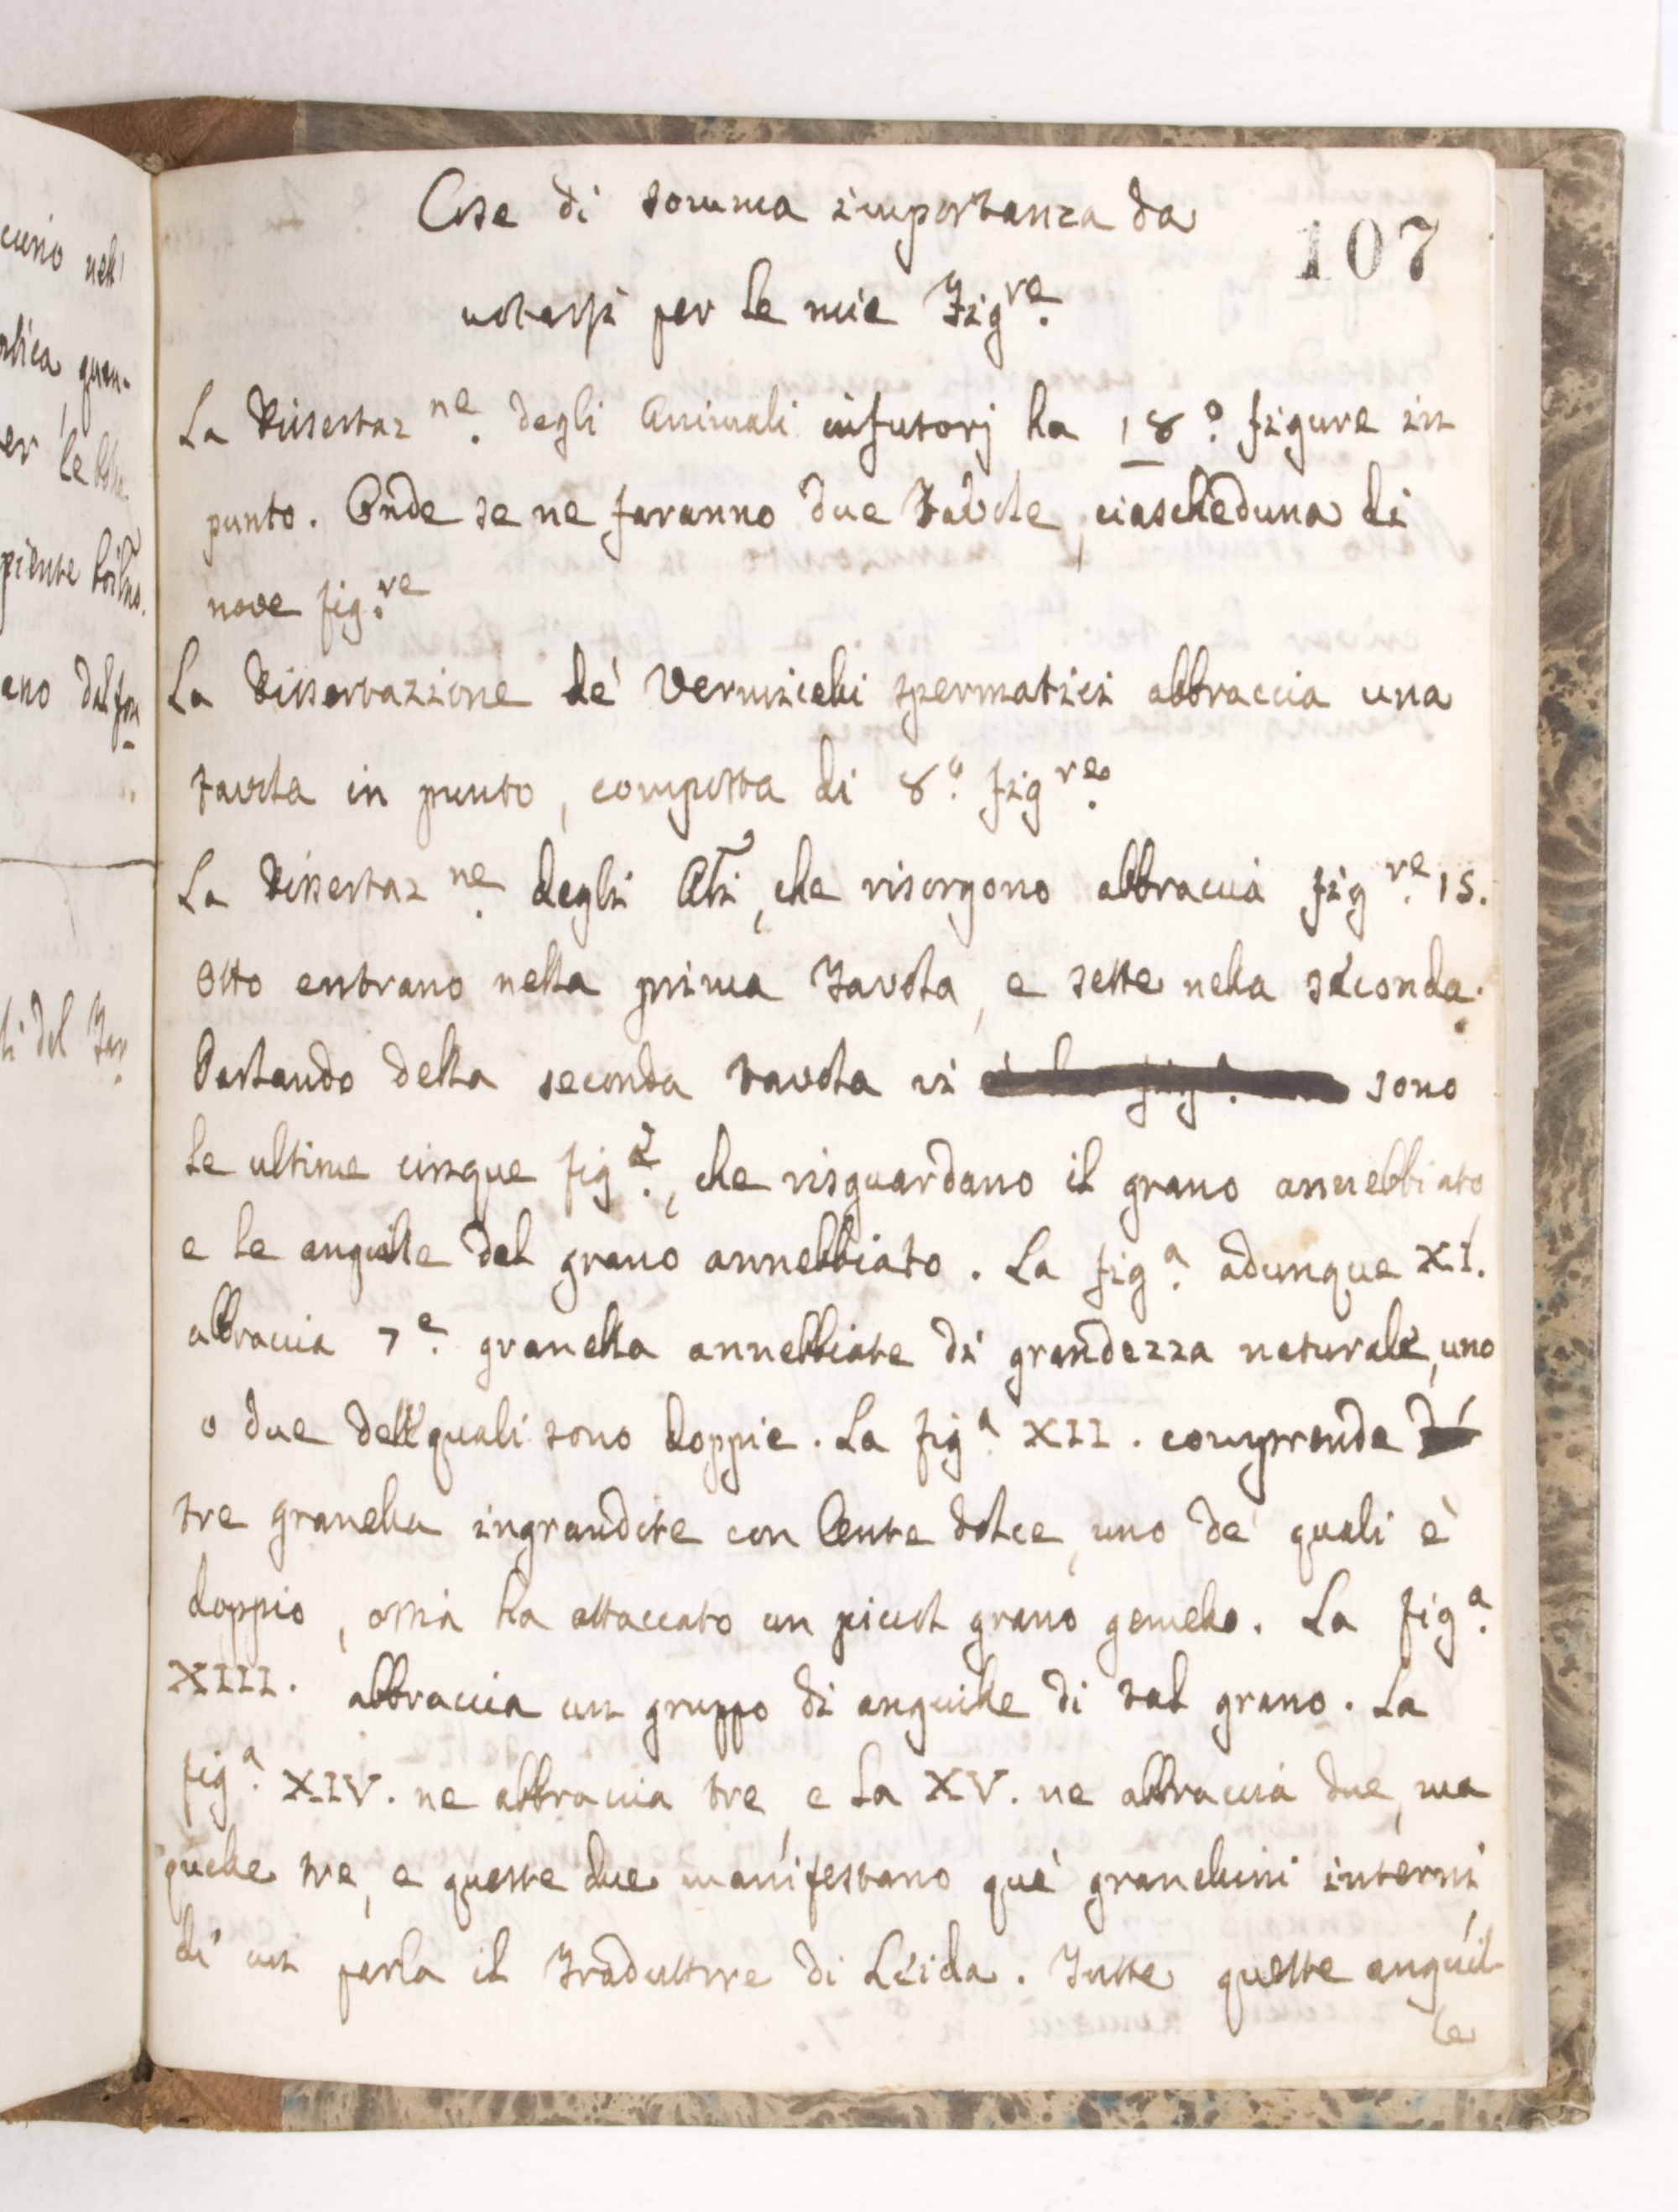 107
Cose di somma importanza da
notarsi per le mie Fig.re
La Dissertaz.ne degli Animali infusorj ha 18.o figure in
punto. Onde se ne faranno due Tavole, ciascheduna di
nove fig.re
La Dissertazione de' Vermicelli spermatici abbraccia una
tavola in punto, composta di 8.o fig.re
La Dissertaz.ne degli Ali, che risorgono abbraccia fig.re 15.
Otto entrano nella prima Tavola, e sette nella seconda.
Parlando della seconda tavola vi sono
le ultime cinque fig.e, che risguardano il grano annebbiato
e le anguille del grano annebbiato. La fig.a adunque XI.
abbraccia 7.e granella annebbiate di grandezza naturale, uno
o due delle quali sono doppie. La fig.a XII. comprende
tre granella ingrandite con lente dolce, uno de' quali è
doppio, ossia ha attaccato un picciol grano gemello. La fig.a
XIII. abbraccia un gruppo di anguille di tal grano. La
fig.a XIV. ne abbraccia tre, e la XV. ne abbraccia due, ma
quelle tre, e queste due manifestano que' granellini interni,
di cui parla il Traduttore di Leida. Tutte queste anguil-
le
cuno nell'
quan-
er le
ano dal
ti del